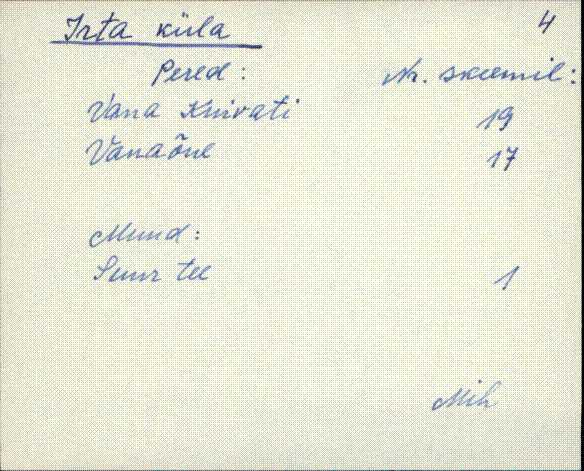 Irta küla 4
Pered: Nr. skeemil:
Vana Knivati 19
Vanaõue 17
Muud:
Suur tee 1
Mih